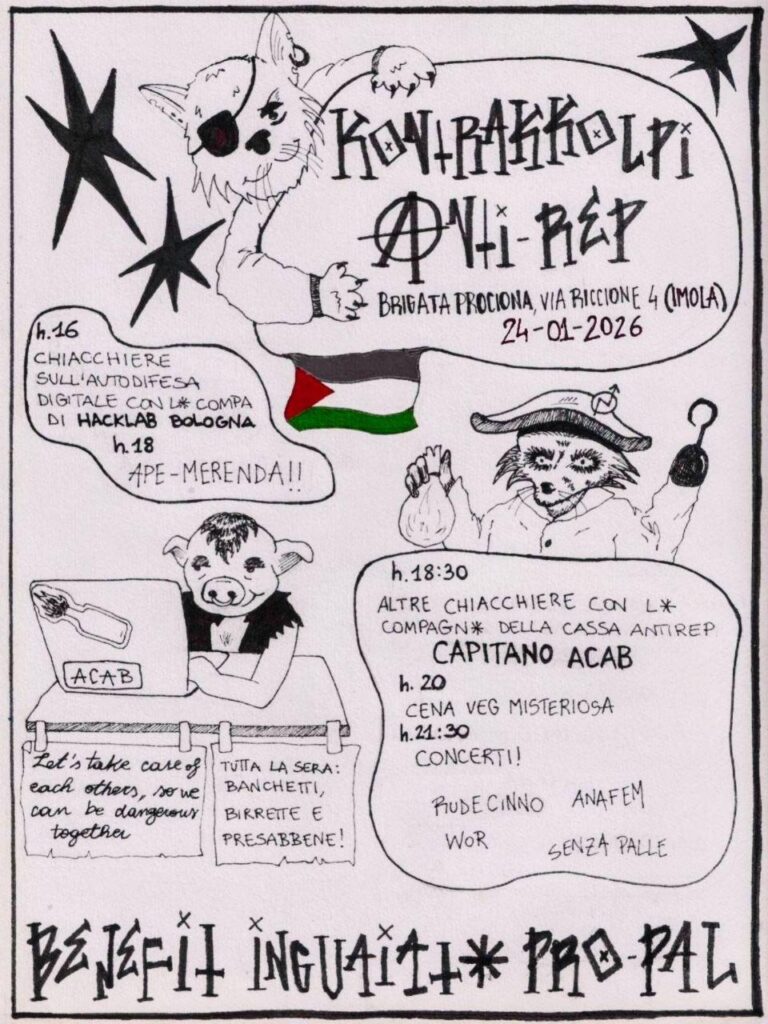 KONTRAKKOLPI
ANTI-REP
BRIGATA PROCIONA, VIA RICCIONE 4 (IMOLA)
24-01-2026
h.16
CHIACCHIERE
SULL'AUTODIFESA
DIGITALE CON L* COMPA
DI HACKLAB BOLOGNA
h.18
APE-MERENDA!!
h.18:30
ALTRE CHIACCHIERE CON L*
COMPAGN* DELLA CASSA ANTIREP
CAPITANO ACAB
h. 20
CENA VEG MISTERIOSA
h.21:30
CONCERTI!
RUDECINNO ANAFEM
WOR SENZA PALLE
ACAB
Let's take care of
each others, so we
can be dangerous
together
TUTTA LA SERA:
BANCHETTI,
BIRRETTE E
PRESABBENE!
BENEFIT INGUAIAT* PRO-PAL